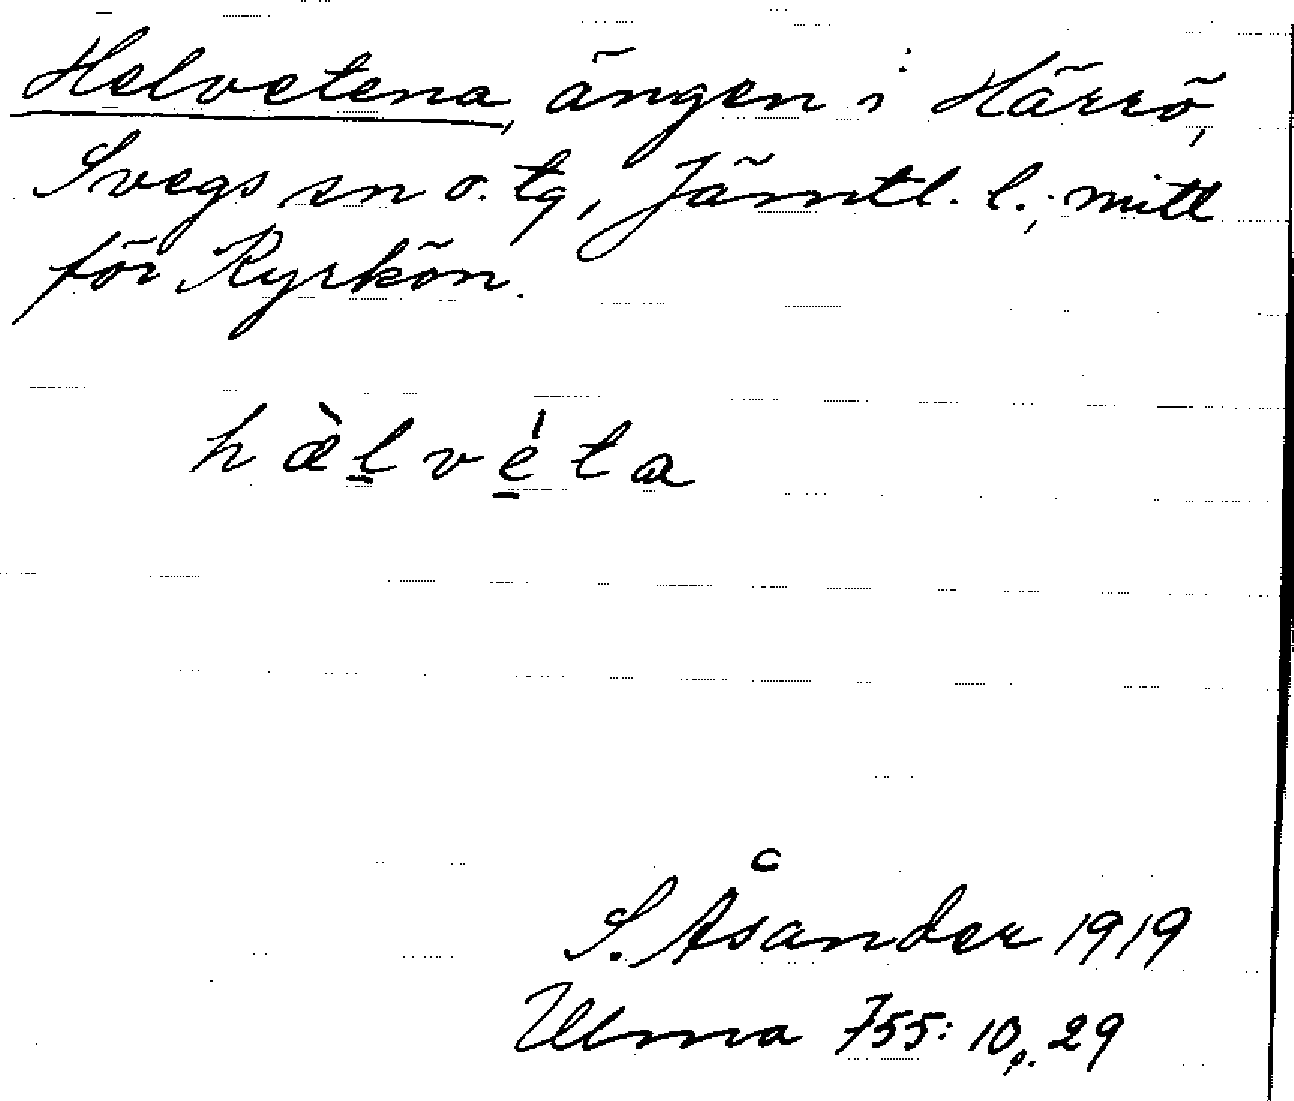 Helvetena, ängen i Härrö,
Svegs sn o. tg, Jämtl. l.; mitt
för Kyrkön.
hàlvéta
S. Åsander 1919
Ulma 755: 10, p. 29